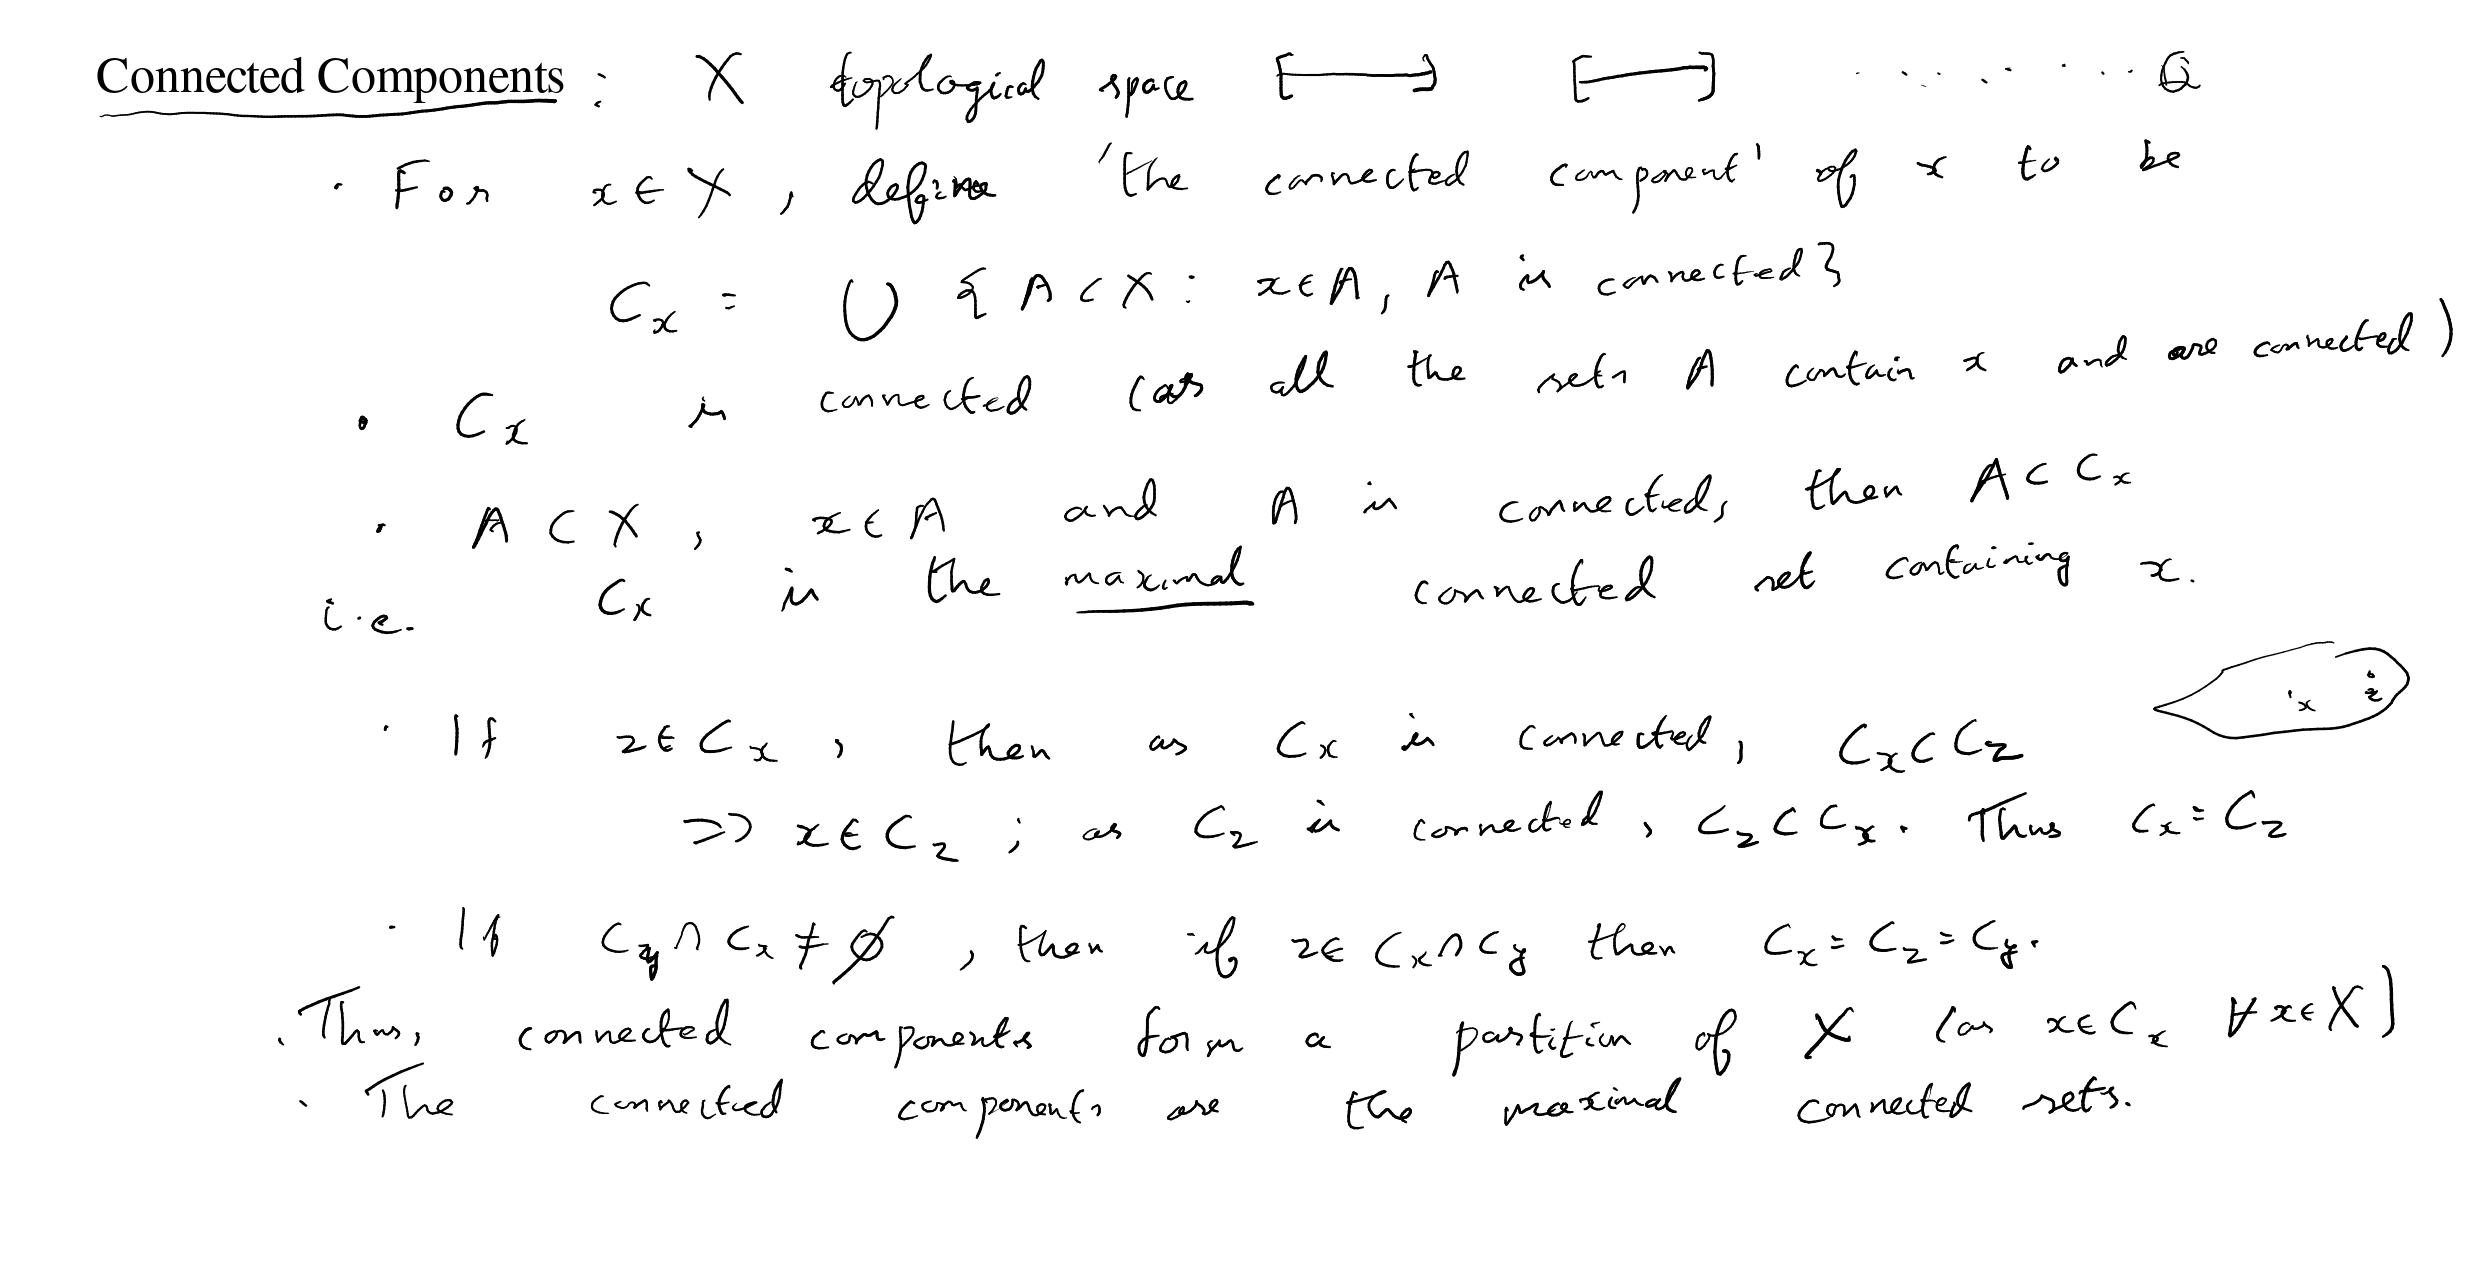 Connected Components : X topological space [—] [—] ........ Q
· For x ∈ X, define 'the connected component' of x to be
C_x = ∪ { A ⊂ X : x ∈ A, A is connected }
· C_x is connected (as all the sets A contain x and are connected)
· A ⊂ X, x ∈ A and A is connected, then A ⊂ C_x
i.e. C_x is the maximal connected set containing x.
x z
· If z ∈ C_x, then as C_x is connected, C_x ⊂ C_z
=> x ∈ C_z ; as C_z is connected, C_z ⊂ C_x. Thus C_x = C_z
· If C_y ∩ C_x ≠ ∅, then if z ∈ C_x ∩ C_y then C_x = C_z = C_y.
· Thus, connected components form a partition of X (as x ∈ C_x ∀ x ∈ X)
· The connected components are the maximal connected sets.